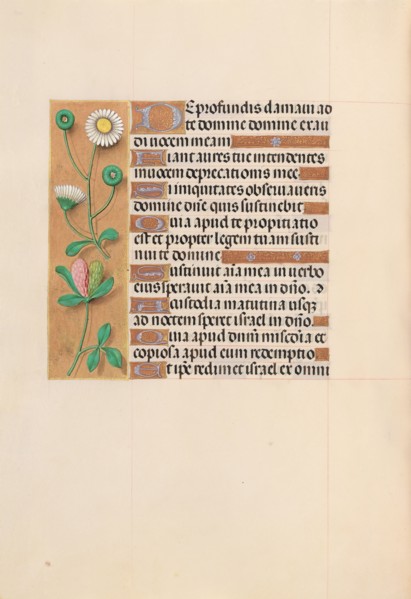 De profundis clamaui ad
te domine domine exau
di uocem meam
Fiant aures tue intendentes
in uocem deprecationis mee
Si iniquitates obseruaueris
domine dñe quis sustinebit
Quia apud te propitiatio
est et propter legem tuam susti
nui te domine
Sustinuit aīa mea in uerbo
eius sperauit aīa mea in dño. A
custodia matutina usq
ad noctem speret israel in dño.
Quia apud dnm miscdia et
copiosa apud eum redemptio
Et ipe redimet israel ex omni